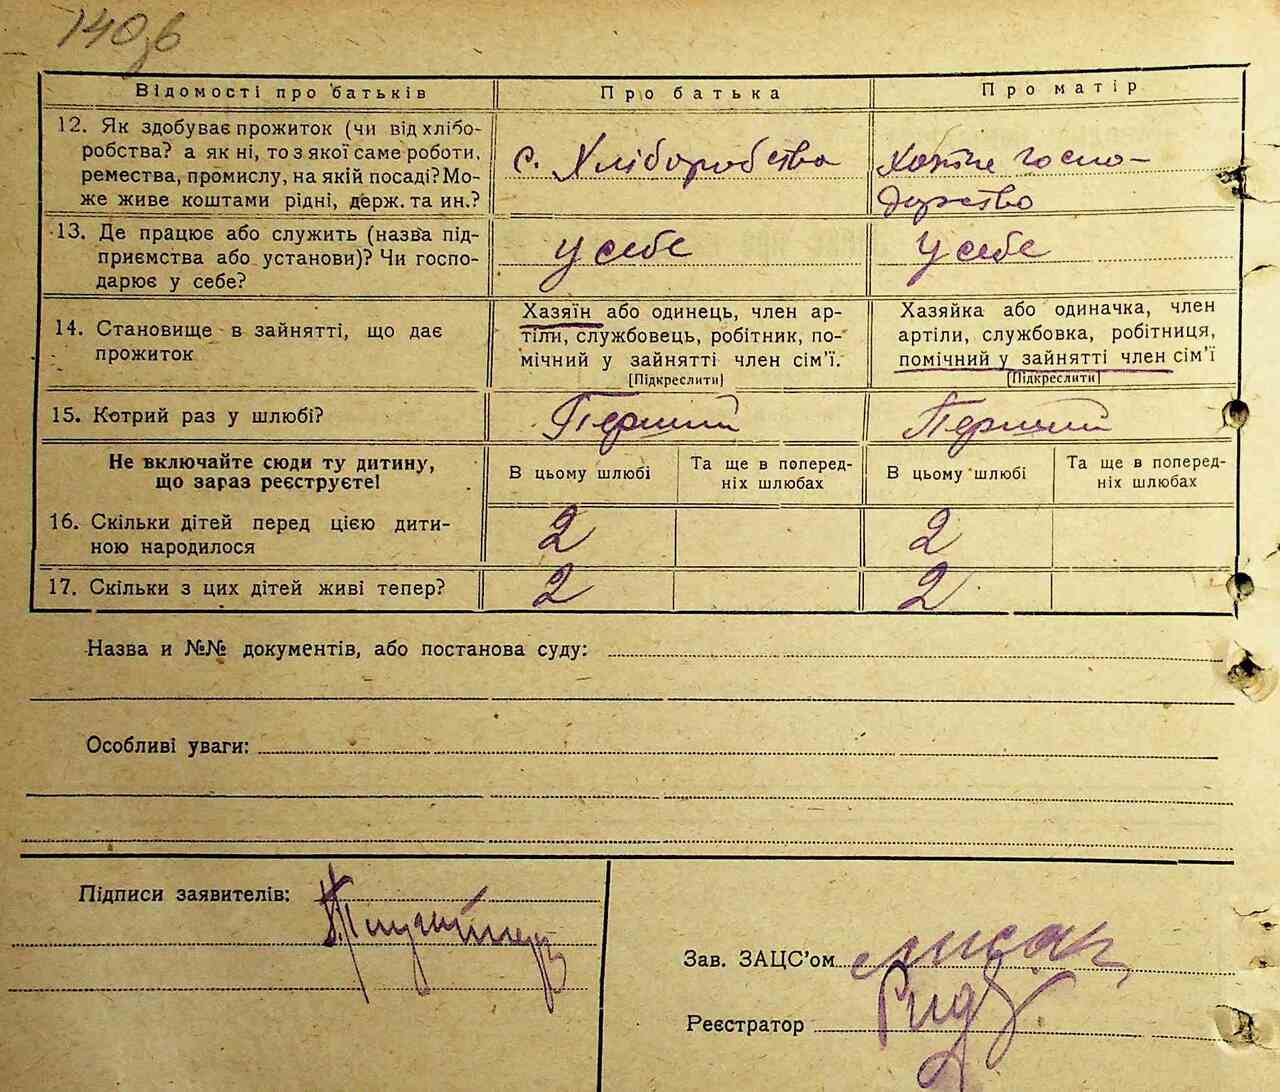 140зв
Відомості про батьків
Про батька
Про матір
12. Як здобуває прожиток (чи від хлібо-
робства? а як ні, то з якої саме роботи,
ремества, промислу, на якій посаді? Мо-
же живе коштами рідні, держ. та ин.?
с. Хліборобства
Хатнє госпо-
дарство
13. Де працює або служить (назва під-
приємства або установи)? Чи госпо-
дарює у себе?
у себе
у себе
14. Становище в зайнятті, що дає
прожиток
Хазяїн або одинець, член ар-
тіли, службовець, робітник, по-
мічний у зайнятті член сім'ї.
[Підкреслити]
Хазяйка або одиначка, член
артіли, службовка, робітниця,
помічний у зайнятті член сім'ї
[Підкреслити]
15. Котрий раз у шлюбі?
Перший
Перший
Не включайте сюди ту дитину,
що зараз реєструєте!
В цьому шлюбі
Та ще в поперед-
ніх шлюбах
В цьому шлюбі
Та ще в поперед-
ніх шлюбах
16. Скільки дітей перед цією дити-
ною народилося
2
2
17. Скільки з цих дітей живі тепер?
2
2
Назва и №№ документів, або постанова суду:
Особливі уваги:
Підписи заявителів:
Зав. ЗАЦС'ом
Реєстратор